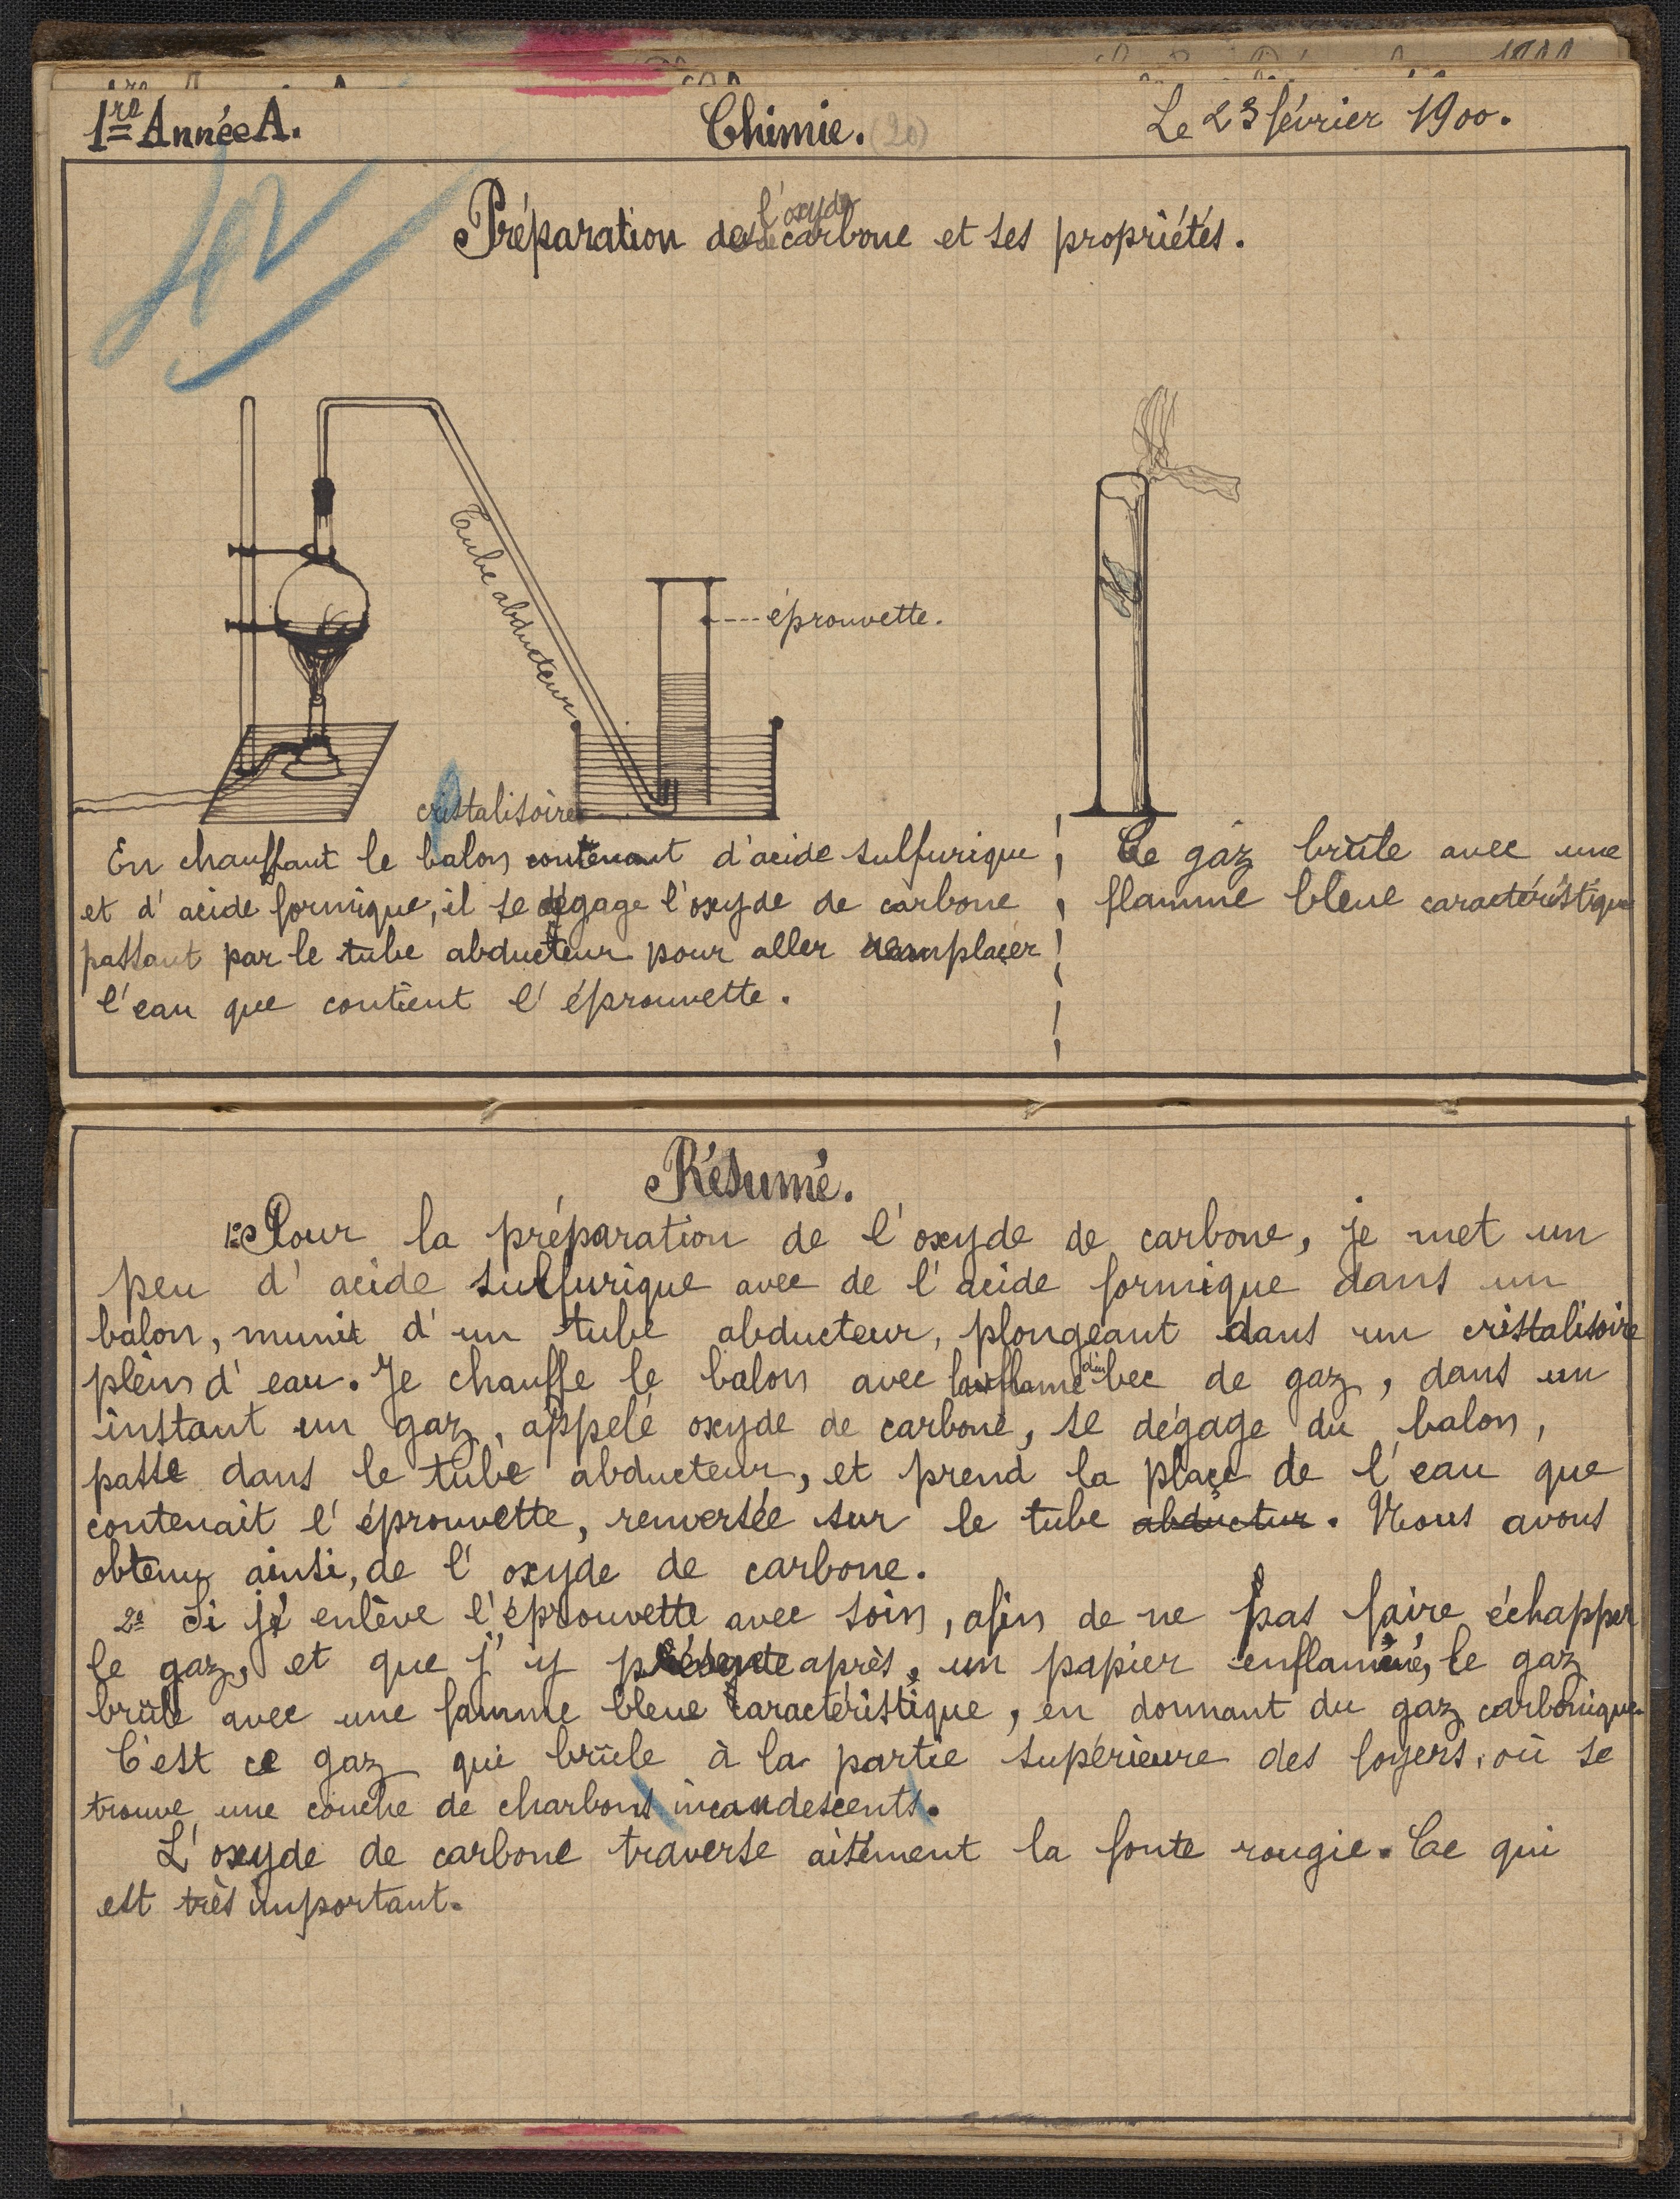 1re Année A.
Chimie. (20)
Le 23 février 1900.
Préparation de l'oxyde de carbone et ses propriétés.
Taube abducteur
éprouvette.
cristalisoire
En chauffant le balon contenant d'acide sulfurique
et d'acide formique, il se dégage l'oxyde de carbone
passant par le tube abducteur pour aller remplaçer
l'eau que contient l'éprouvette.
Ce gaz brûle avec une
flamme bleue caractéristique
Résumé.
1º Pour la préparation de l'oxyde de carbone, je met un
peu d'acide sulfurique avec de l'acide formique dans un
balon, munit d'un tube abducteur, plongeant dans un cristalisoire
plein d'eau. Je chauffe le balon avec la flame du bec de gaz, dans un
instant un gaz, appelé oxyde de carbone, se dégage du balon,
passe dans le tube abducteur, et prend la plaçe de l'eau que
contenait l'éprouvette, renversée sur le tube abductur. Nous avons
obtenu ainsi, de l'oxyde de carbone.
2º Si je enlève l'éprouvette avec soin, afin de ne pas faire échapper
le gaz, et que j'y présente après, un papier enflammé, le gaz
brûle avec une famme bleue caractéristique, en donnant du gaz carbonique.
C'est ce gaz qui brûle à la partie supérieure des foyers, où se
trouve une couche de charbons incandescents.
L'oxyde de carbone traverse aisément la fonte rougie. Ce qui
est très important.